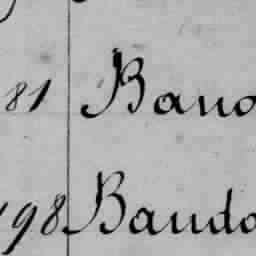 81 Bano
198 Bando